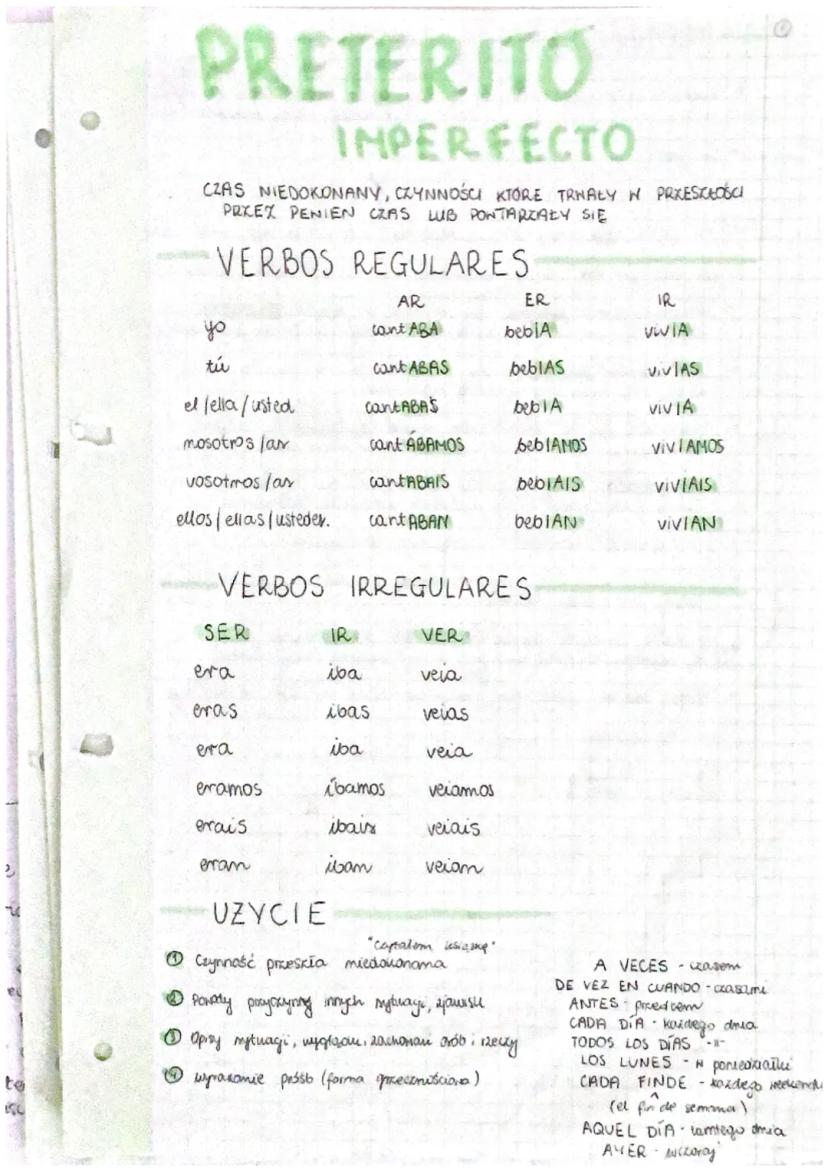 PRETERITO
IMPERFECTO
CZAS NIEDOKONANY, CZYNNOŚCI KTÓRE TRWAŁY W PRZESZŁOŚCI
PRZEZ PEWIEN CZAS LUB POWTARZAŁY SIĘ
VERBOS REGULARES
AR ER IR
yo cantABA bebIA vivIA
tú cantABAS bebIAS vivIAS
el/ella/usted cantABAS bebIA vivIA
nosotros/as cantÁBAMOS bebIAMOS vivIAMOS
vosotros/as cantABAIS bebIAIS vivIAIS
ellos/ellas/ustedes. cantABAN bebIAN vivIAN
VERBOS IRREGULARES
SER IR VER
era iba veia
eras ibas veias
era iba veia
eramos íbamos veiamos
erais ibais veiais
eran iban veian
UŻYCIE
"Czytałem książkę"
① Czynność przeszła niedokonana
② Powody przyczyny innych sytuacji, zjawisk
③ Opisy sytuacji, wyglądu, zachowań osób i rzeczy
④ wyrażanie próśb (forma grzecznościowa)
A VECES - czasem
DE VEZ EN CUANDO - czasami
ANTES - przedtem
CADA DÍA - każdego dnia
TODOS LOS DÍAS -"-
LOS LUNES - w poniedziałki
CADA FINDE - każdego weekendu
(el fin de semana)
AQUEL DÍA - tamtego dnia
AYER - wczoraj